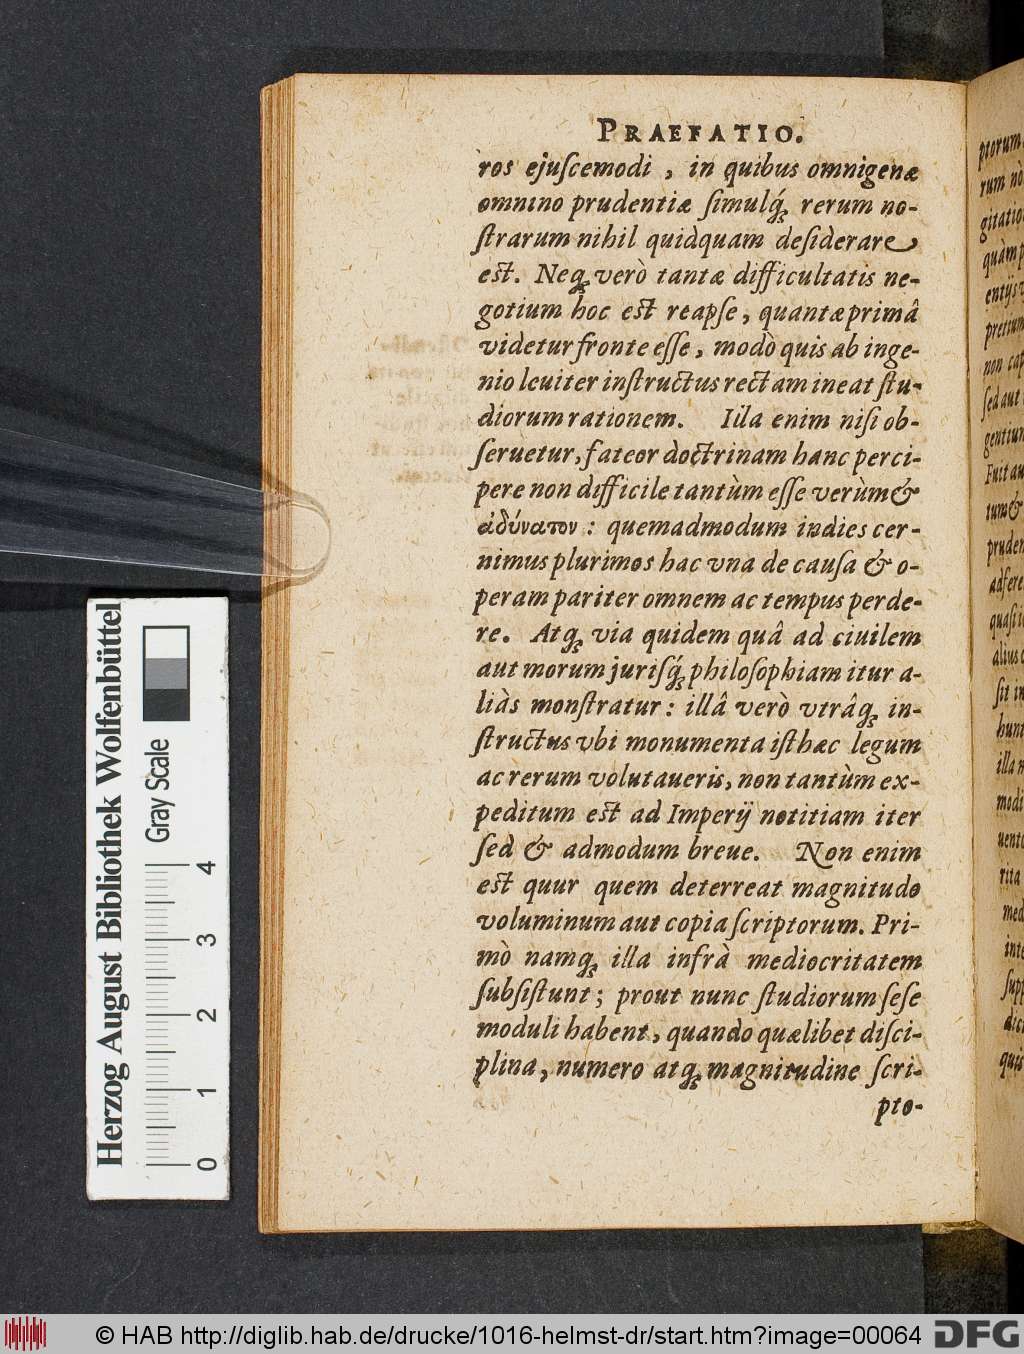 PRAEFATIO.
ros ejuſcemodi, in quibus omnigenæ
omnino prudentiæ ſimulq́ꝫ rerum no-
ſtrarum nihil quidquam deſiderare
eſt. Neqꝫ verò tantæ difficultatis ne-
gotium hoc eſt reapſe, quantæ primâ
videtur fronte eſſe, modò quis ab inge-
nio leuiter inſtructus rectam ineat ſtu-
diorum rationem. Illa enim niſi ob-
ſeruetur, fateor doctrinam hanc perci-
pere non difficile tantùm eſſe verùm &
ἀδύνατον: quemadmodum indies cer-
nimus plurimos hac vna de cauſa & o-
peram pariter omnem ac tempus perde-
re. Atqꝫ via quidem quâ ad ciuilem
aut morum juriſq́ꝫ philoſophiam itur a-
liàs monſtratur: illâ verò vtrâqꝫ in-
ſtructus vbi monumenta iſthæc legum
ac rerum volutaueris, non tantùm ex-
peditum eſt ad Imperij notitiam iter
ſed & admodum breue. Non enim
eſt quur quem deterreat magnitudo
voluminum aut copia ſcriptorum. Pri-
mò namqꝫ illa infrà mediocritatem
ſubſiſtunt; prout nunc ſtudiorum ſeſe
moduli habent, quando quælibet diſci-
plina, numero atqꝫ magnitudine ſcri-
pto-
ptorum
rum nò
quàm p
non cap
ſed aut
Fuit au
tum &
alius
ſit in
illa
modi
rita
quis
Herzog August Bibliothek Wolfenbüttel
Gray Scale
0 1 2 3 4
© HAB http://diglib.hab.de/drucke/1016-helmst-dr/start.htm?image=00064
DFG